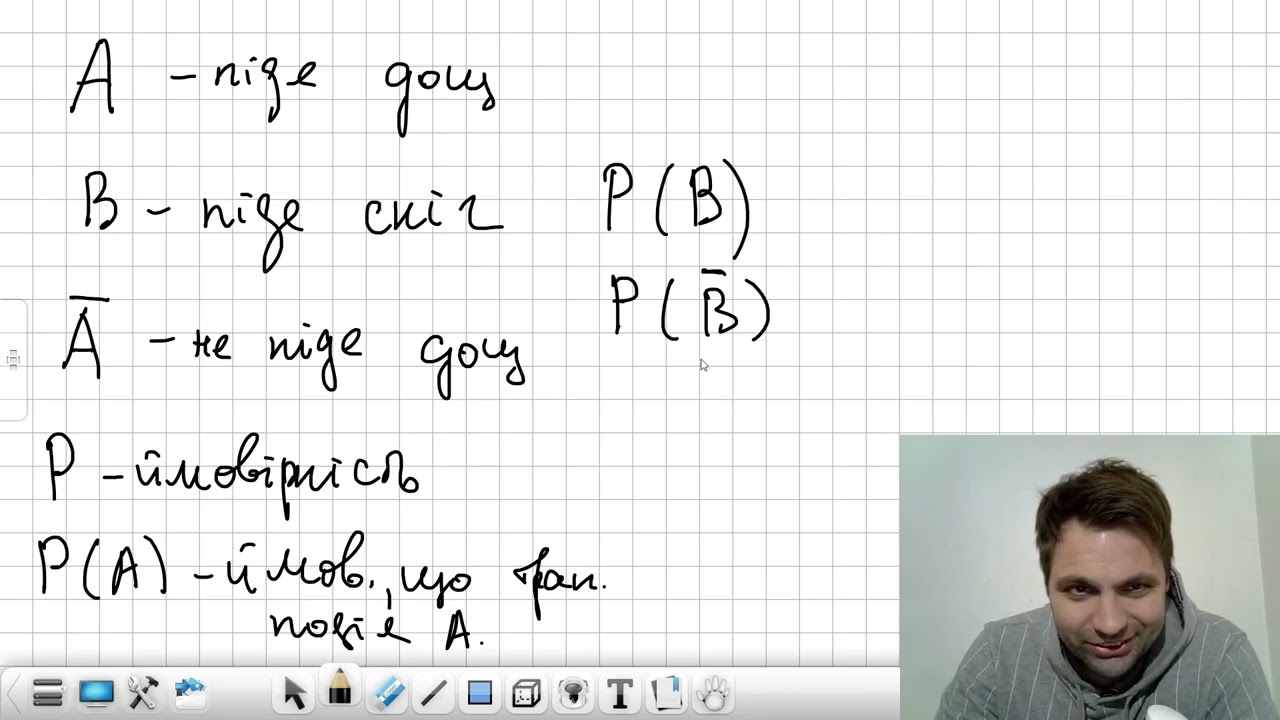 A - піде дощ
B - піде сніг
P(B)
P(B̅)
A̅ - не піде дощ
P - ймовірність
P(A) - ймов., що трап.
подія A.